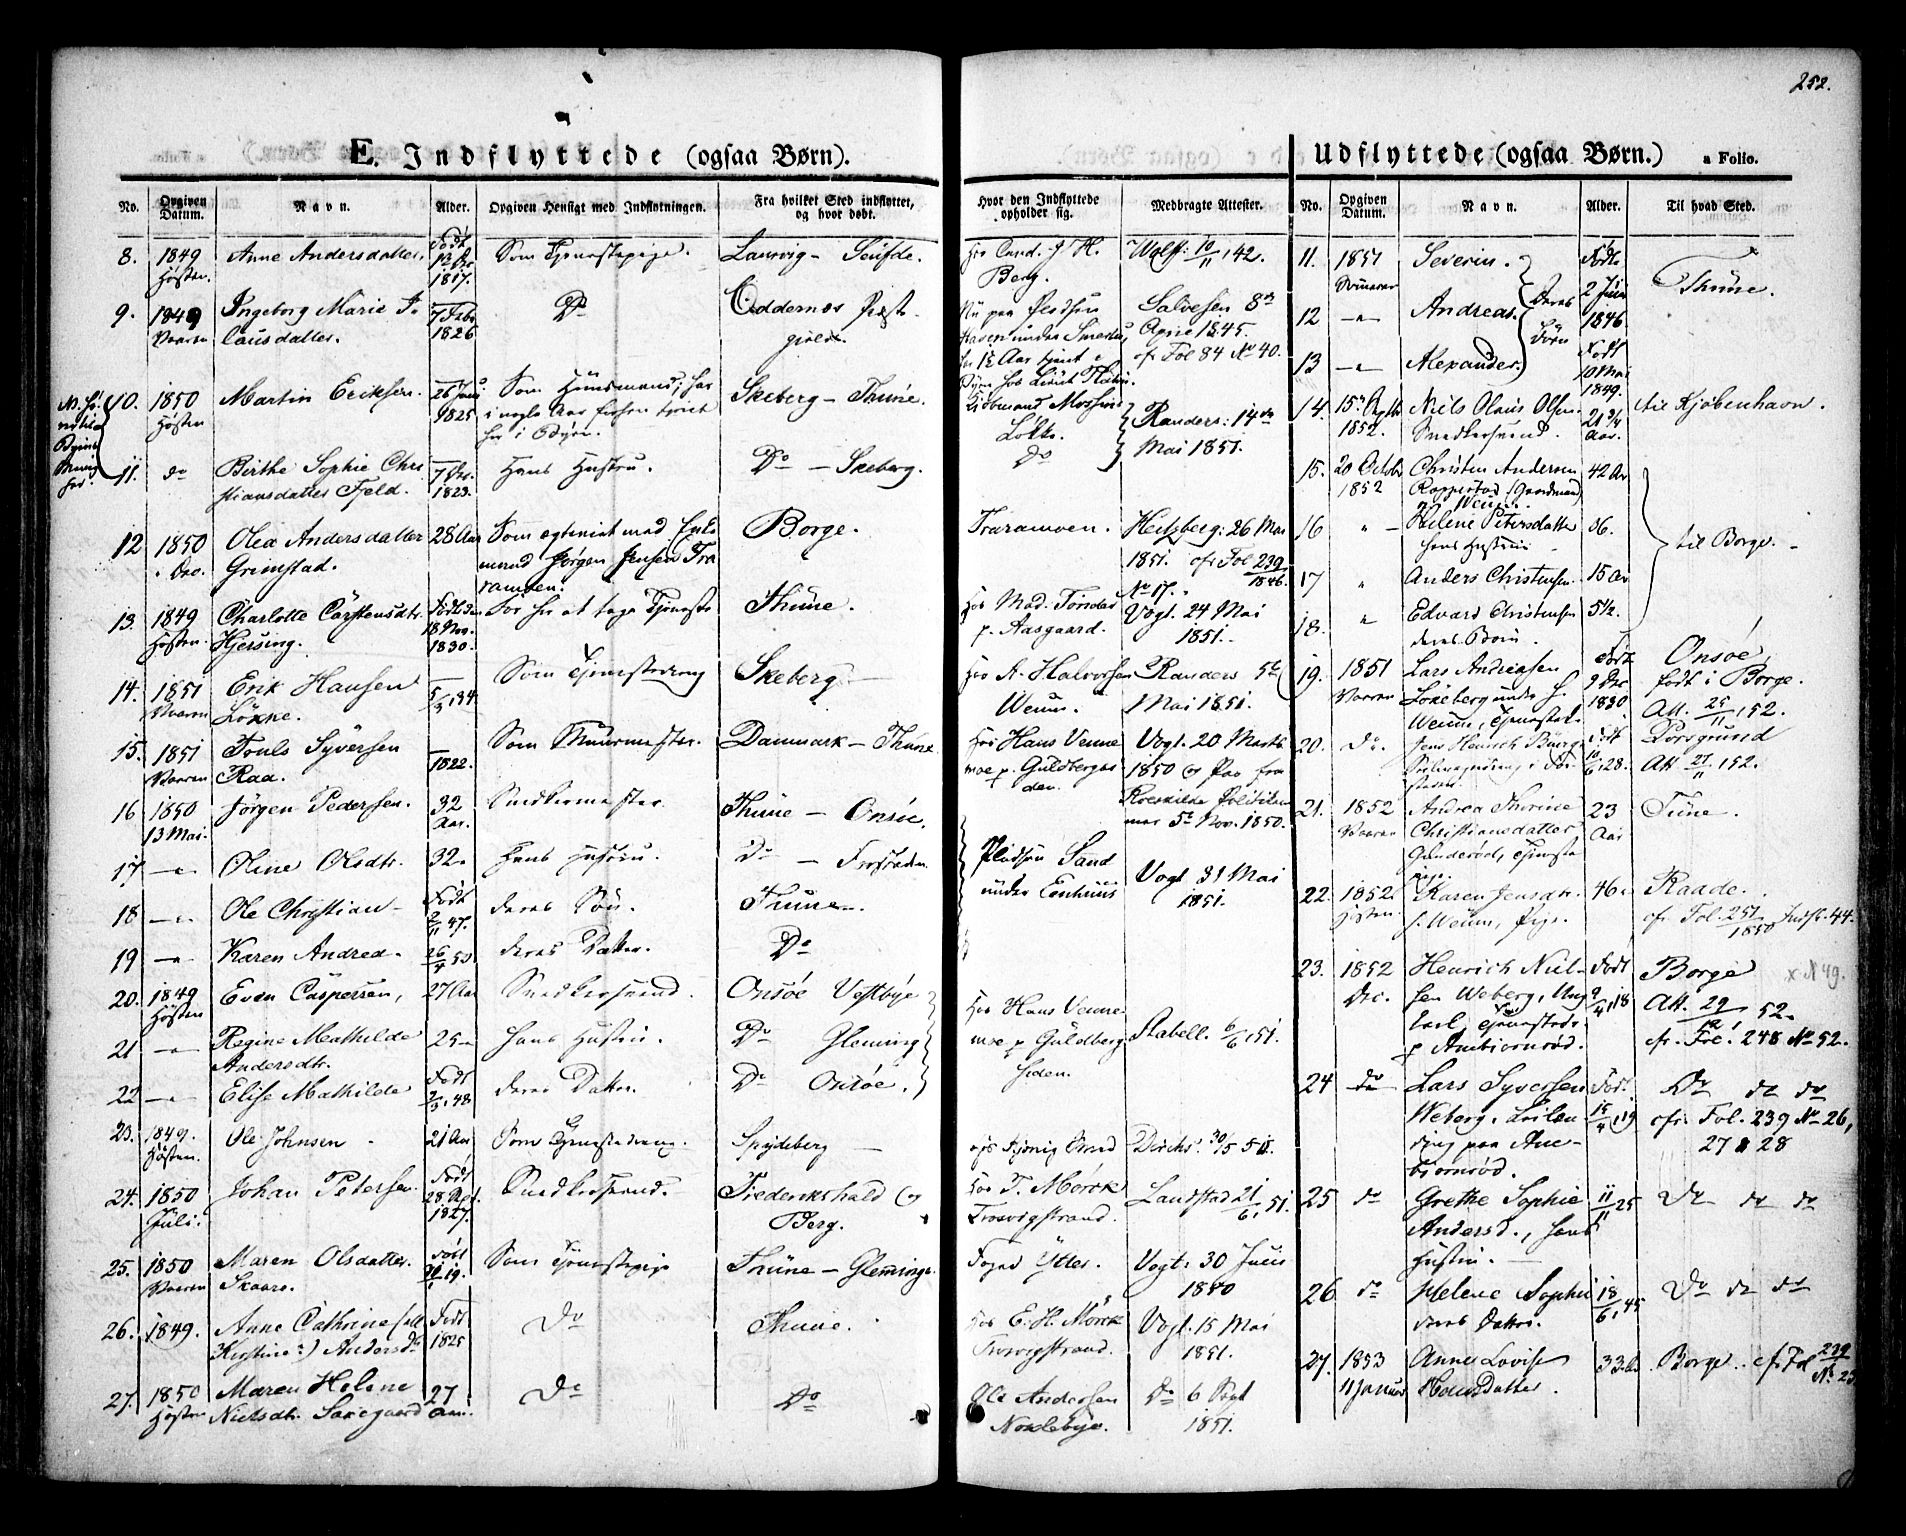 252.
E. Indflyttede (ogsaa Børn).
Udflyttede (ogsaa Børn.) a Folio.
No. Opgiven Datum. Navn. Alder. Opgiven Hensigt med Indflytningen. Fra hvilket Sted indflyttet, og hvor døbt. Hvor den Indflyttede opholder sig. Medbragte Attester.
No. Opgiven Datum. Navn. Alder. Til hvad Sted.
8. 1849 Høsten. Anne Andersdatter. Født 13 1817. Som Tjenestepige. Laurvig — Hos Cand. J. H. Berg. Wolff: 10/11, 42.
9. 1849 Vaaren Ingeborg Marie Clausdatter. 7 Febr 1826 Do Oddernes Præstegield. Salvesen 8de April 1845. cfr Fol 84 No 40.
10. 1850 Høsten Martin Eriksen. 26 Juni 1825 Som Huusmand; har i nogle Aar forhen tjent her i Byen. Skeberg — Thune. Kjøbmand Løkke. Randers: 14de Mai 1851.
11. do Birthe Sophie Christiansdatter Fjeld. 7 Dec. 1823. Hans Hustru. Do — Skeberg. Do
12 1850 Dec. Olea Andersdatter Grimstad. 28 Aar Som egteviet med Enkemand Jørgen Jensen Traramven. Borge. Traramven. Hertzberg: 26 Mai 1851. cfr Fol 239/1846. No 17.
13. 1849 Høsten. Charlotte Carstensdtr. Hjersing. Født den 18 Nov. 1830. For her at tage Tjeneste Thune. Hos Mad. Tønder p. Aasgaard. Vogt. 24 Mai 1851.
14. 1851 Vaaren Erik Hansen Løkke. 5/3, 34. Som Tjenestedreng Skeberg — Hos A. Halvorsen Weum. Randers 5te Mai 1851.
15. 1851 Vaaren Touls Syversen Raa. 1822. Som Muurmester. Danmark — Thune Hos Hans Vennemoe p. Guldbergsiden. Vogt. 20 Marts 1850 og Pas fra Roeskilde Politikammer 5te Nov. 1850.
16 1850 13 Mai. Jørgen Pedersen. 32 Aar. Snedkermester Thune — Onsøe. Pladsen Sand under Enhuus Vogt 31 Mai 1851.
17 — Oline Olsdtr. 32. Hans Hustru. Do —
18 — Ole Christian — Født 2/11 47. deres Søn. Thune.
19 — Karen Andrea. 26/4 50 deres Datter. Do
20. 1849 Høsten Even Caspersen, 27 Aar Snedkersvend. Onsøe Vestbye Hos Hans Vennemoe p. Guldbergsiden. Stabell. 6/6, 51.
21 — Regine Mathilde Andersdtr. 25 — Hans Hustru. Do Glemming
22 — Elise Mathilde Født 2/3, 48. deres Datter. Do Onsøe.
23. 1849. Høsten. Ole Johnsen 21 Aar Som Tjenestedreng. Spydeberg — Dirchs. 30/5 51.
24. 1850 Juli. Johan Petersen Født 28 1827. Snedkersvend. Frederikshald og Berg. Hos T. Mørck Trosvigstrand. Landstad 21/6, 51.
25. 1850 Vaaren Maren Olsdatter Skaare. Født 19. Som Tjenestepige Thune — Glemminge. Foged Ytter. Vogt: 30 Juni 1850
26. 1849. Anne Cathrine (ell Kirstine?) Andersdr Født 1825 Do Thune. Hos E. H. Mørck Trosvigstrand. Vogt. 15 Mai 1851.
27. 1850 Høsten Maren Helene Nielsdtr. Saxegaard 27 Aar. Do Do Ole Andersen Noklebye. Do 6 Sept 1851.
11. 1851 Sommeren Severin. Født 2 Juni 1846 deres Børn Thune.
12 — Andreas.
13 — Alexander. Født 10 Mai 1849.
14. 15de 1852. Niels Olaus Olsen Snedkersvend. 21 3/4 Aar. til Kjøbenhavn.
15. 20 October 1852 Christen Andersen Roppestad (Gaardmand) Weum. 42 Ar til Borge.
16 " — Helene Petersdatter hans Hustru 36.
17 " Anders Christensen 15 Ar
18. " Edvard Christensen deres Børn. 5 1/2.
19. 1851 Vaaren Lars Andreasen Loxeberg under H. Weum, Tjenestek. Født 9 Dec 1830 Onsøe, født i Borge. Att. 25/11, 52.
20. Do. Jens Henrich Født 10/6, 28. Porsgrund Att 27/11, 52.
21. 1852 Vaaren Andrea Thorine Christiansdatter, Gunderød, Tjenestepige. 23 Aar Tune.
22. 1852 Høsten. Karen Jensdtr. H. Weum, Pige. 46. Raade. cfr Fol. 251/1850 Indfl. 44.
23. 1852 Dec. Henrich Nielsen Weberg, Ungkarl, Tjenestedr. p Ambjørnrød. Født 9/4, 18 Borge Att. 29/12 52. cfr. Fol. 248 No 52. x N 49.
24 do Lars Syversen Weberg. paa Ambjørnrød. Født 15/4, 19 Do do do cfr Fol. 239 No 26, 27 & 28
25 do Grethe Sophie Andersd., hans Hustru. 11/11 25 Do do do
26 do Helene Sophie deres Datter. 18/6, 45 Do do do
27. 1853 11 Januar Anne Lovise Hansdatter. 33 Borge. cfr Fol 239 No 25